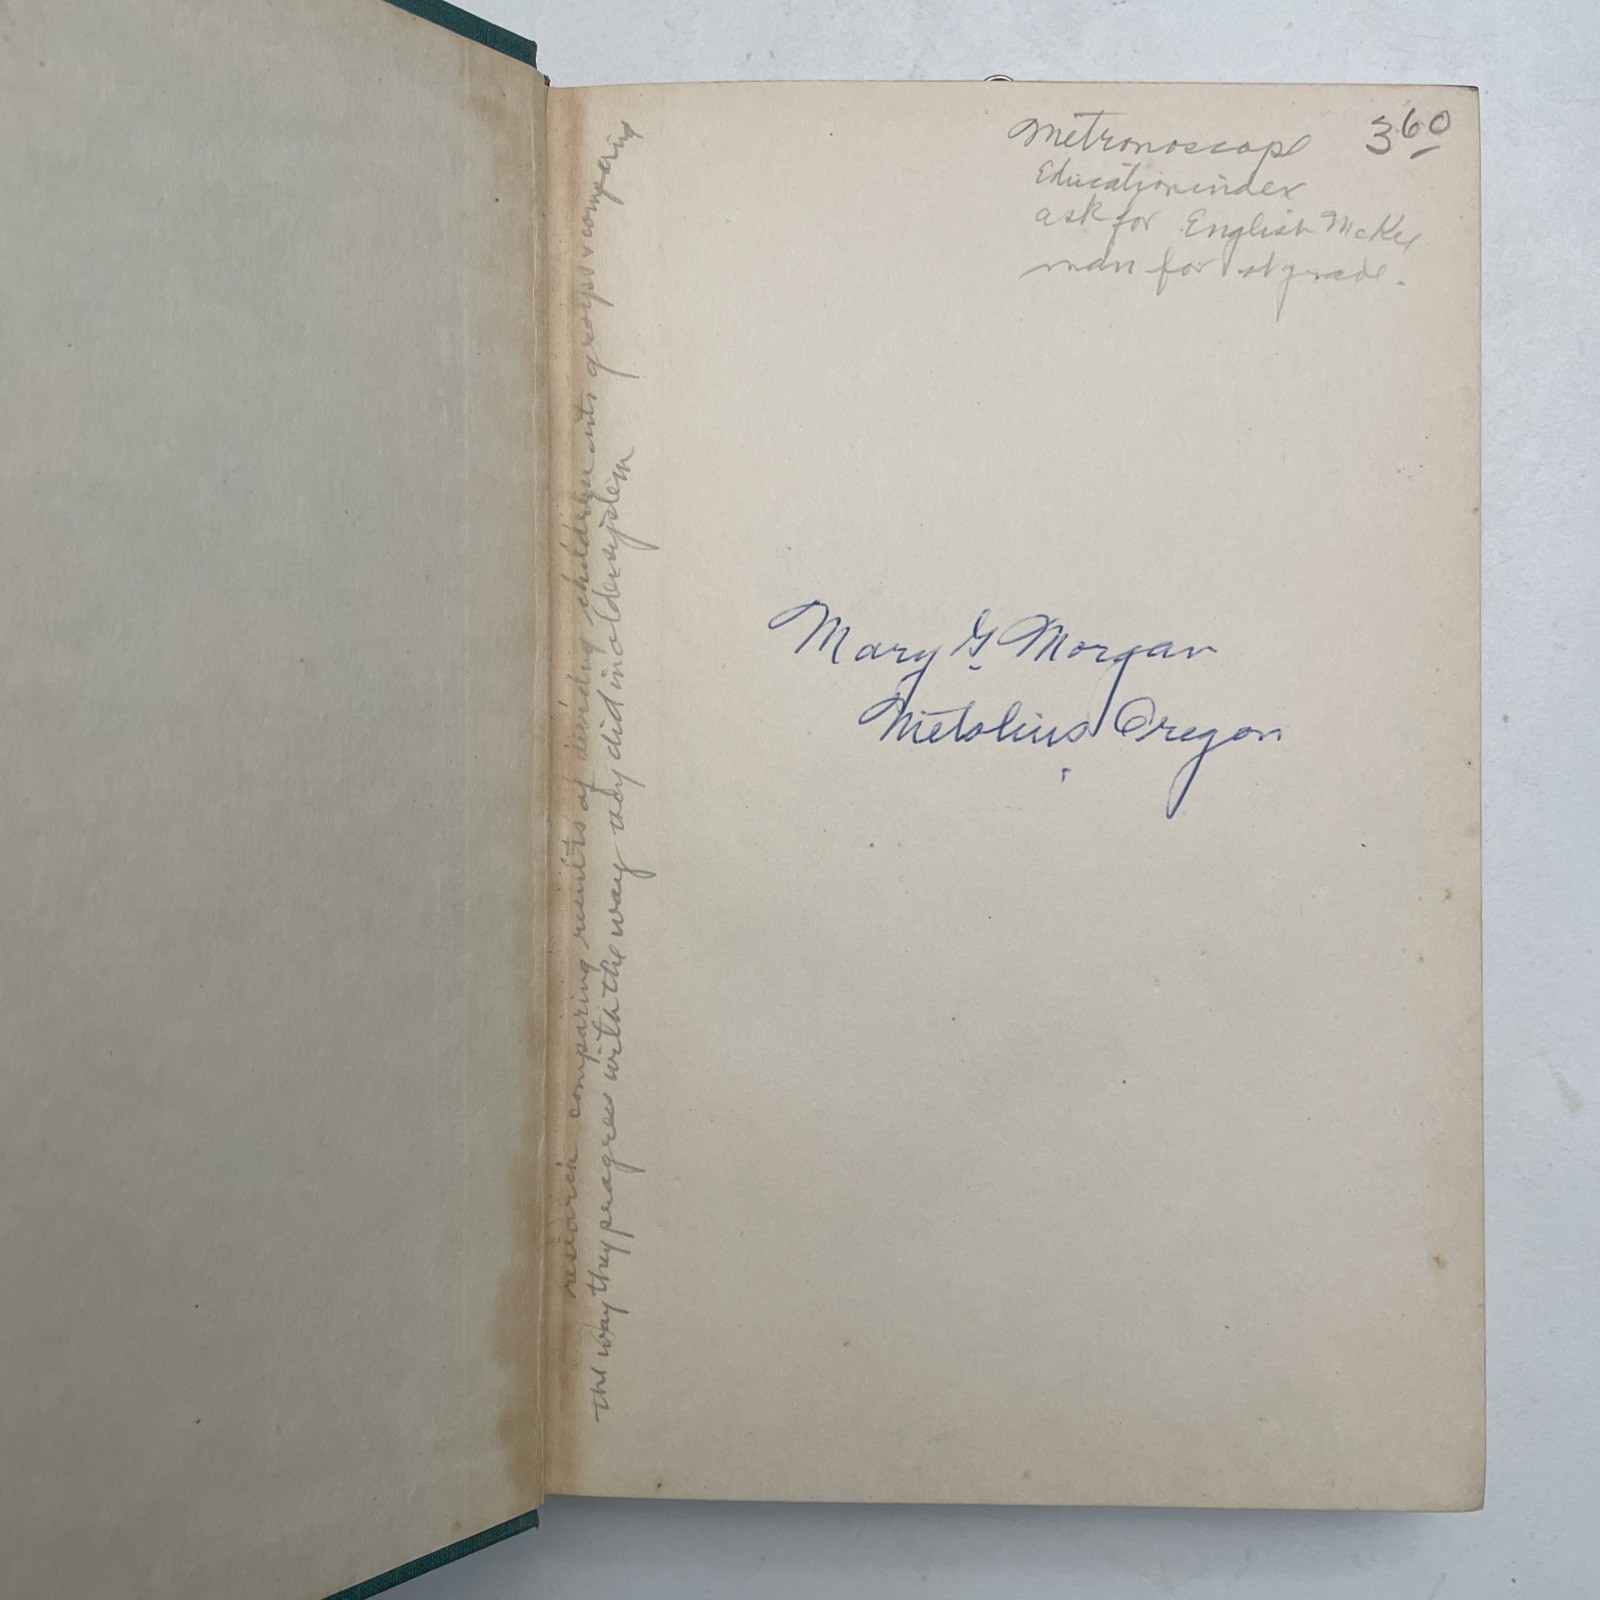 Metronoscope 3 60
Education index
ask for English McKee
man for 1st grade.
Mary G. Morgan
Metolius, Oregon
research comparing results of deviding children into groups & comparing
the way they progress with the way they did in older system